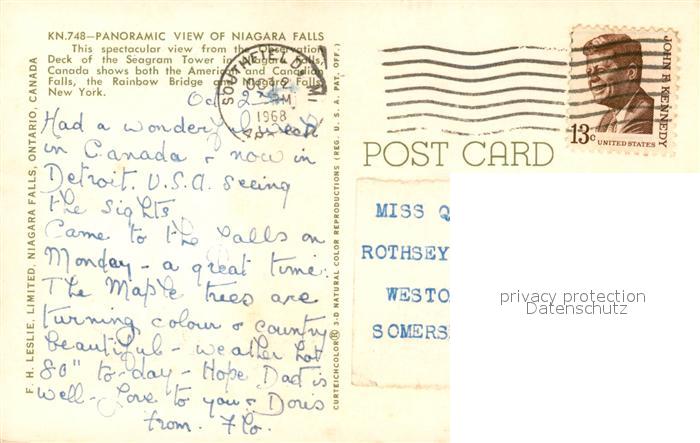 KN.748—PANORAMIC VIEW OF NIAGARA FALLS
This spectacular view from the Observation
Deck of the Seagram Tower in Niagara Falls,
Canada shows both the American and Canadian
Falls, the Rainbow Bridge and Niagara Falls,
New York.
Oct 2nd
Had a wonderful week
in Canada & now in
Detroit. U.S.A. seeing
the sights
Came to the Falls on
Monday - a great time.
The Maple trees are
turning colour & country
beautiful - weather hot
80" to-day - Hope Dad is
well - Love to you & Doris
from. Flo.
F. H. LESLIE, LIMITED, NIAGARA FALLS, ONTARIO, CANADA
CURTEICHCOLOR® 3-D NATURAL COLOR REPRODUCTIONS (REG. U. S. A. PAT. OFF.)
SOUTHFIELD, MI
OCT 2
PM
1968
JOHN F. KENNEDY
13c
UNITED STATES
POST CARD
MISS Q
ROTHSEY
WESTO
SOMERS
privacy protection
Datenschutz